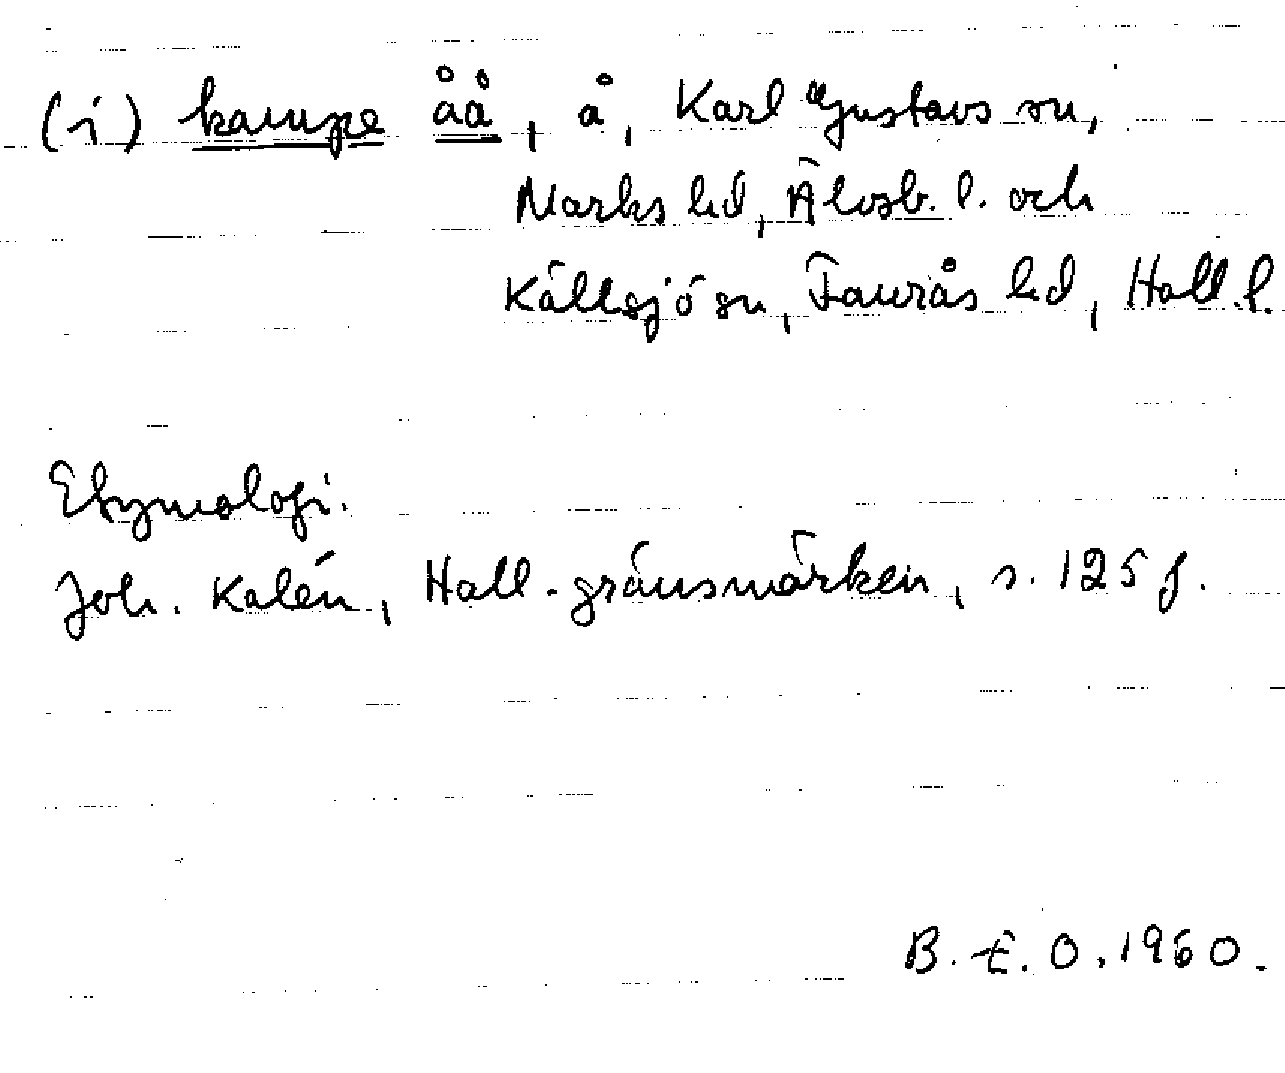 (i) kampe åå, å, Karl Gustavs sn,
Marks hd, Älvsb. l. och
Källsjö sn, Faurås hd, Hall. l.
Etymologi.
Joh. Kalén, Hall. gränsmärken, s. 125 f.
B. E. O. 1960.